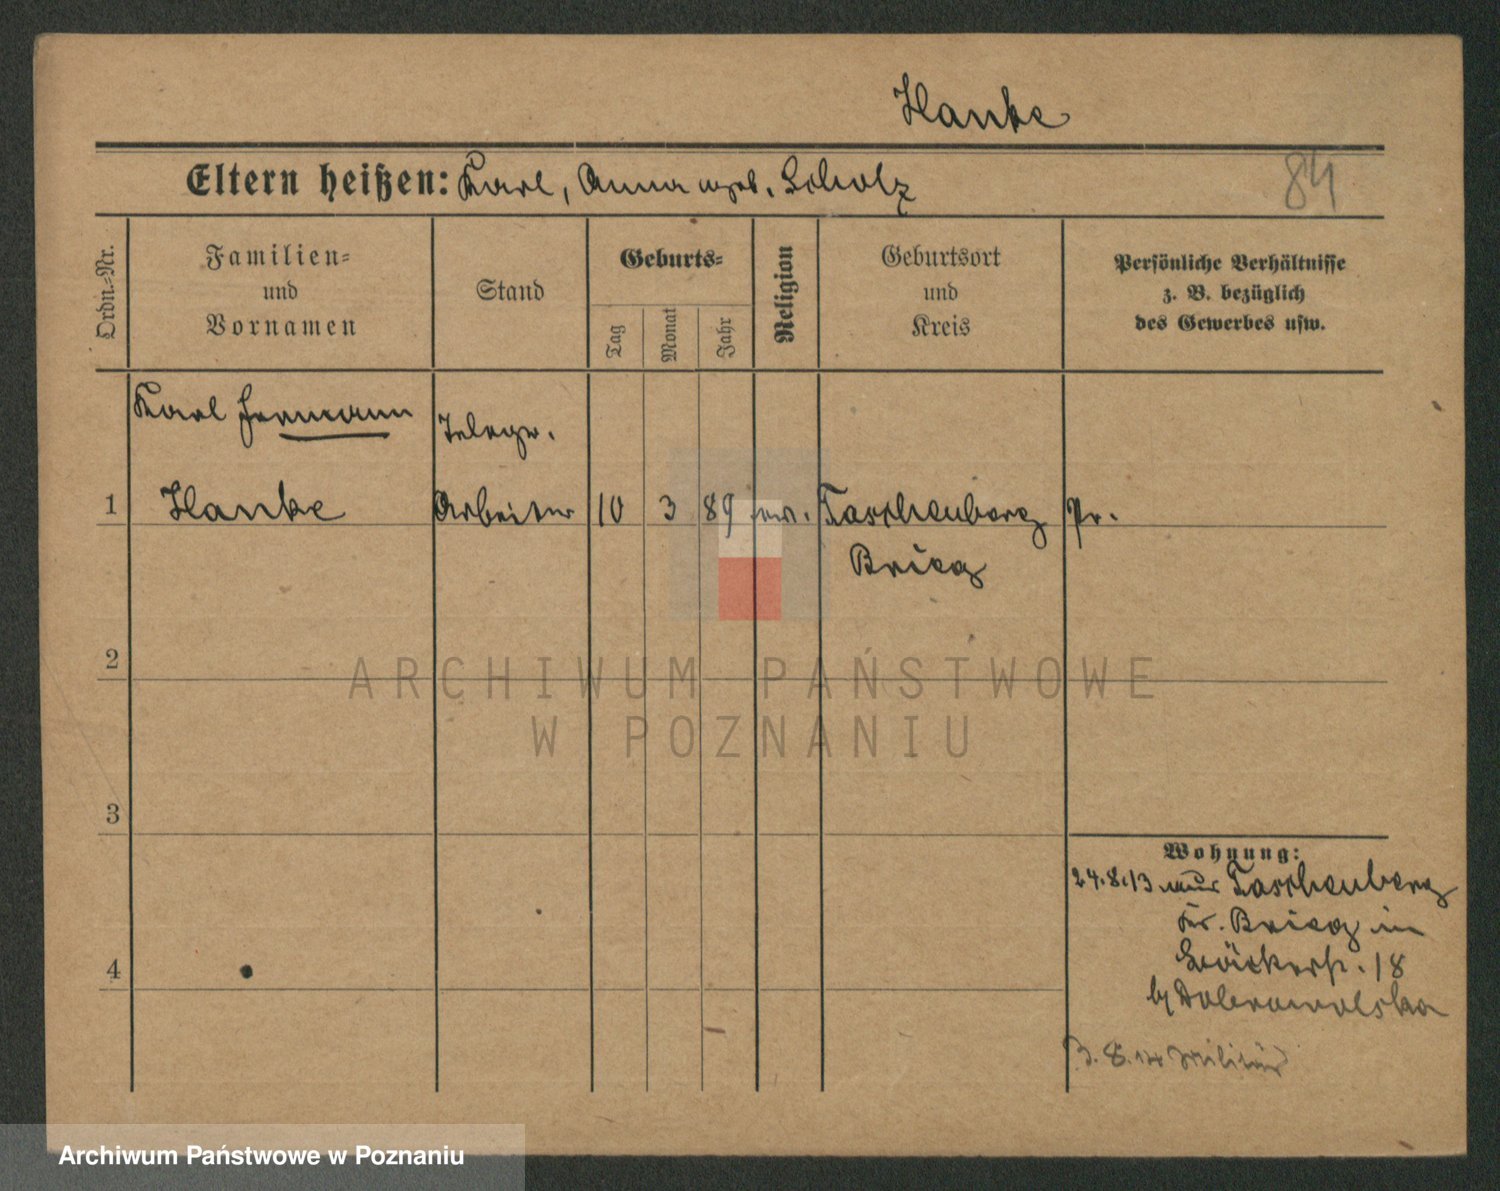 Hanke
Eltern heißen: Karl, Anna geb. Scholz
84
Ordn.-Nr.
Familien-
und
Vornamen
Stand
Geburts-
Tag
Monat
Jahr
Religion
Geburtsort
und
Kreis
Persönliche Verhältnisse
z. B. bezüglich
des Gewerbes usw.
Karl Hermann
Telegr.
1 Hanke Arbeiter 10 3 89 ev. Taschenberg Pr.
Brieg
2
ARCHIWUM PAŃSTWOWE
W POZNANIU
3
Wohnung:
24.8.13 aus Taschenberg
Kr. Brieg in
18
b/ Dobrowolska
4
3.8.14 Militär
Archiwum Państwowe w Poznaniu